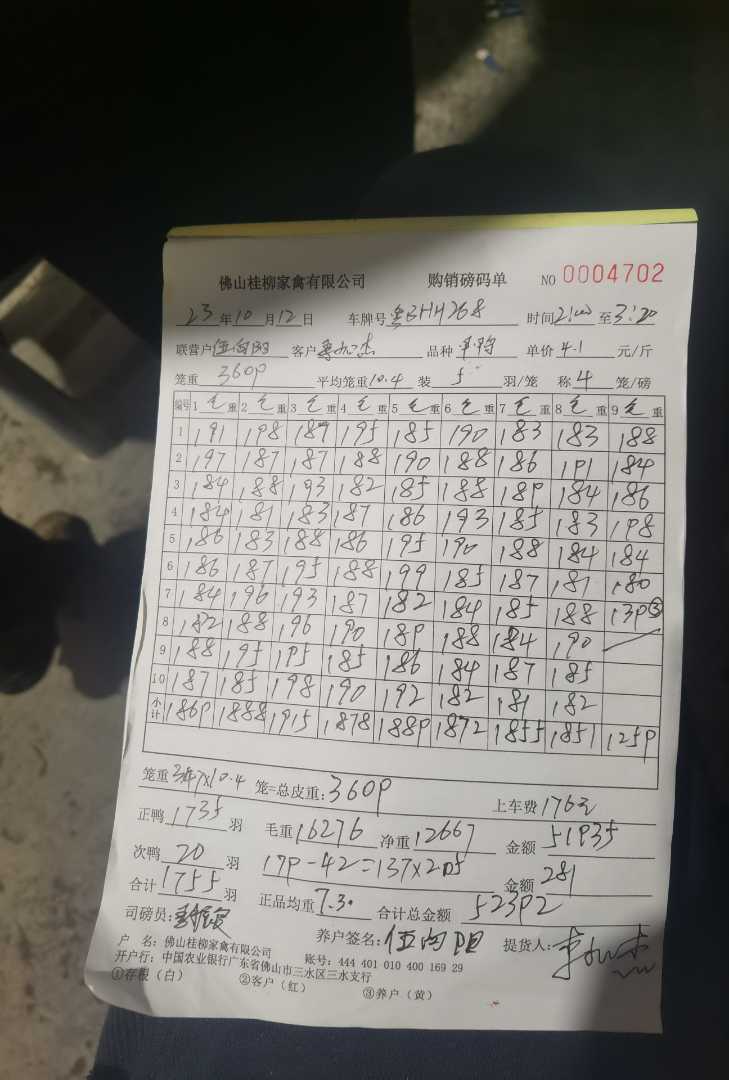 佛山桂柳家禽有限公司 购销磅码单 NO 0004702
23年10月12日 车牌号 粤 HH268 时间2:00至3:20
联营户 客户 品种 单价4.1元/斤
笼重3609 平均笼重10.4 装5羽/笼 称4笼/磅
编号 1毛重 2毛重 3毛重 4毛重 5毛重 6毛重 7毛重 8毛重 9毛重
1 191 198 187 195 185 190 183 183 188
2 197 187 187 188 190 188 186 191 184
3 184 188 193 182 185 188 189 184 186
4 184 181 183 187 186 193 185 183 198
5 186 183 188 186 195 190 188 184 184
6 186 187 195 188 199 185 187 181 180
7 184 196 193 187 182 184 185 188 139③
8 182 188 196 190 189 188 184 190
9 188 195 195 185 186 184 187 185
10 187 185 198 190 192 182 181 182
小计 1869 1888 1915 1878 1889 1872 1855 1851 1259
笼重347×10.4笼=总皮重:3609 上车费176元
正鸭1735羽 毛重16276 净重12667 金额51935
次鸭20羽 179-42=137×2.05 金额281
合计1755羽 正品均重7.30 合计总金额52392
司磅员: 养户签名: 提货人:
户 名: 佛山桂柳家禽有限公司
开户行: 中国农业银行广东省佛山市三水区三水支行 账号: 444 401 010 400 169 29
①存根（白） ②客户（红） ③养户（黄）